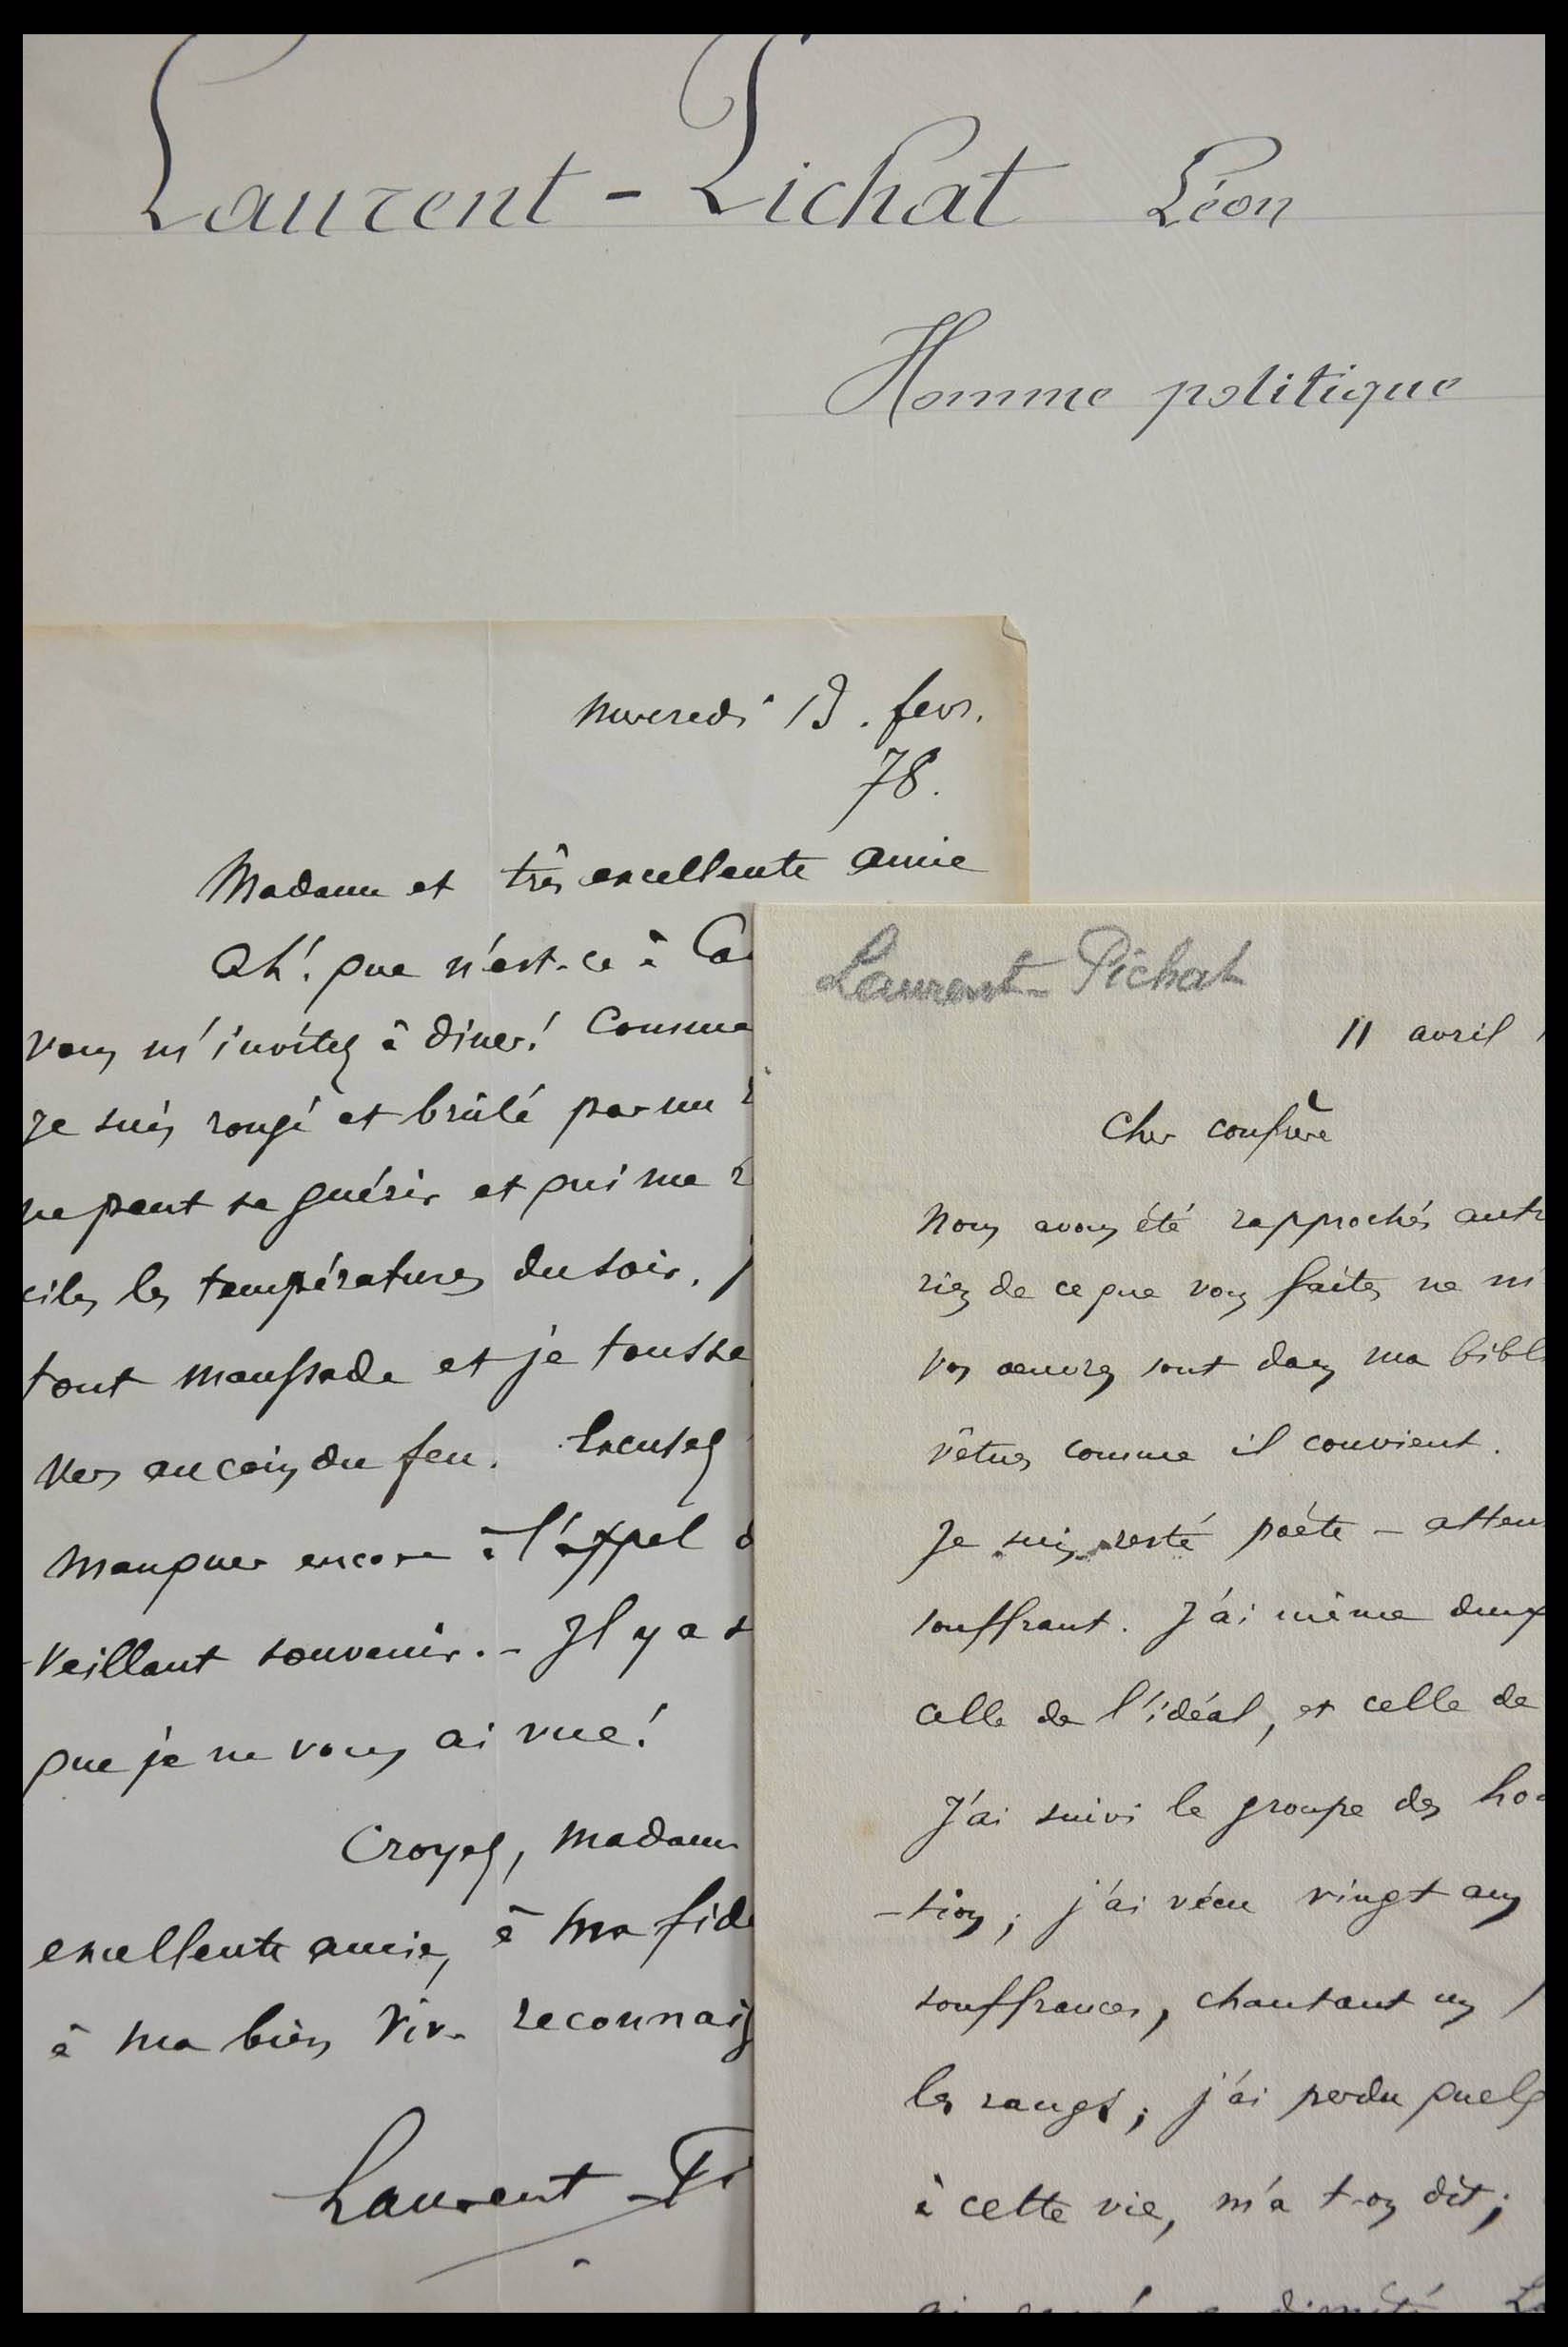 Laurent-Pichat Léon
Homme politique
Mercredi 13. fevr.
78.
Madame et très excellente amie
Ah! que n'est-ce à
vous m'invitez à diner! Comme
je suis rongé et brûlé par un
ne peut se guérir et qui me
ciles les températures du soir.
tout maussade et je tousse
vers au coin du feu. Excusez
manquer encore à l'appel
veillant souvenir. - Il y a
que je ne vous ai vue!
Croyez, Madame
excellente amie, à ma fidé
à ma bien vive reconnais
Laurent Pi
Laurent-Pichat
11 avril
Cher confrère
Nous avons été rapprochés autr
rien de ce que vous faites ne m
vos oeuvres sont dans ma bibl
vêtues comme il convient.
Je suis resté poète - atten
souffrant. J'ai même deux
celle de l'idéal, et celle de
J'ai suivi le groupe des
-tion; j'ai vécu vingt ans
souffrances, chantant un
les rangs; j'ai perdu quelq
à cette vie, m'a t-on dit;